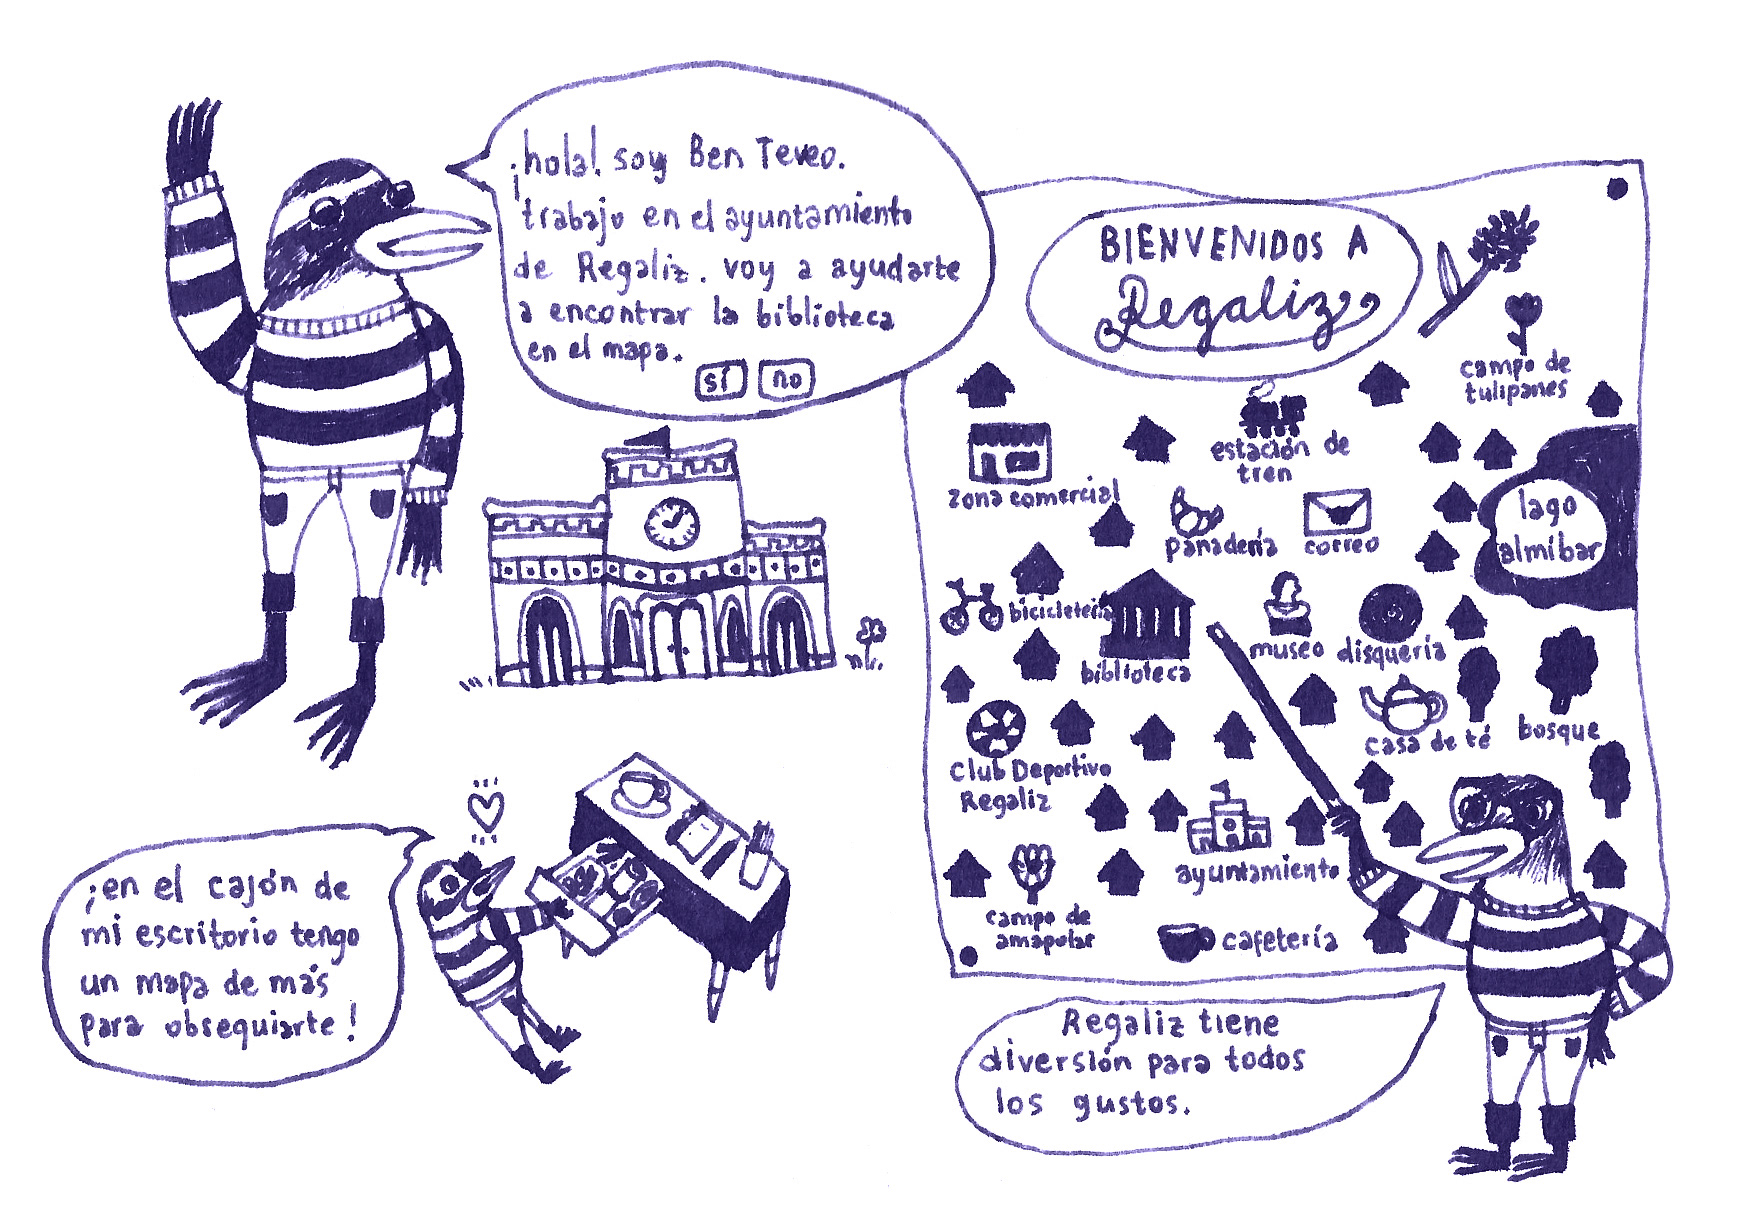 ¡hola! soy Ben Teveo.
trabajo en el ayuntamiento
de Regaliz. voy a ayudarte
a encontrar la biblioteca
en el mapa.
sí no
BIENVENIDOS A
Regaliz
campo de
tulipanes
estación de
tren
zona comercial
panadería
correo
lago
almíbar
bicicletería
biblioteca
museo
disquería
casa de té
bosque
Club Deportivo
Regaliz
ayuntamiento
campo de
amapolar
cafetería
¡en el cajón de
mi escritorio tengo
un mapa de más
para obsequiarte!
Regaliz tiene
diversión para todos
los gustos.